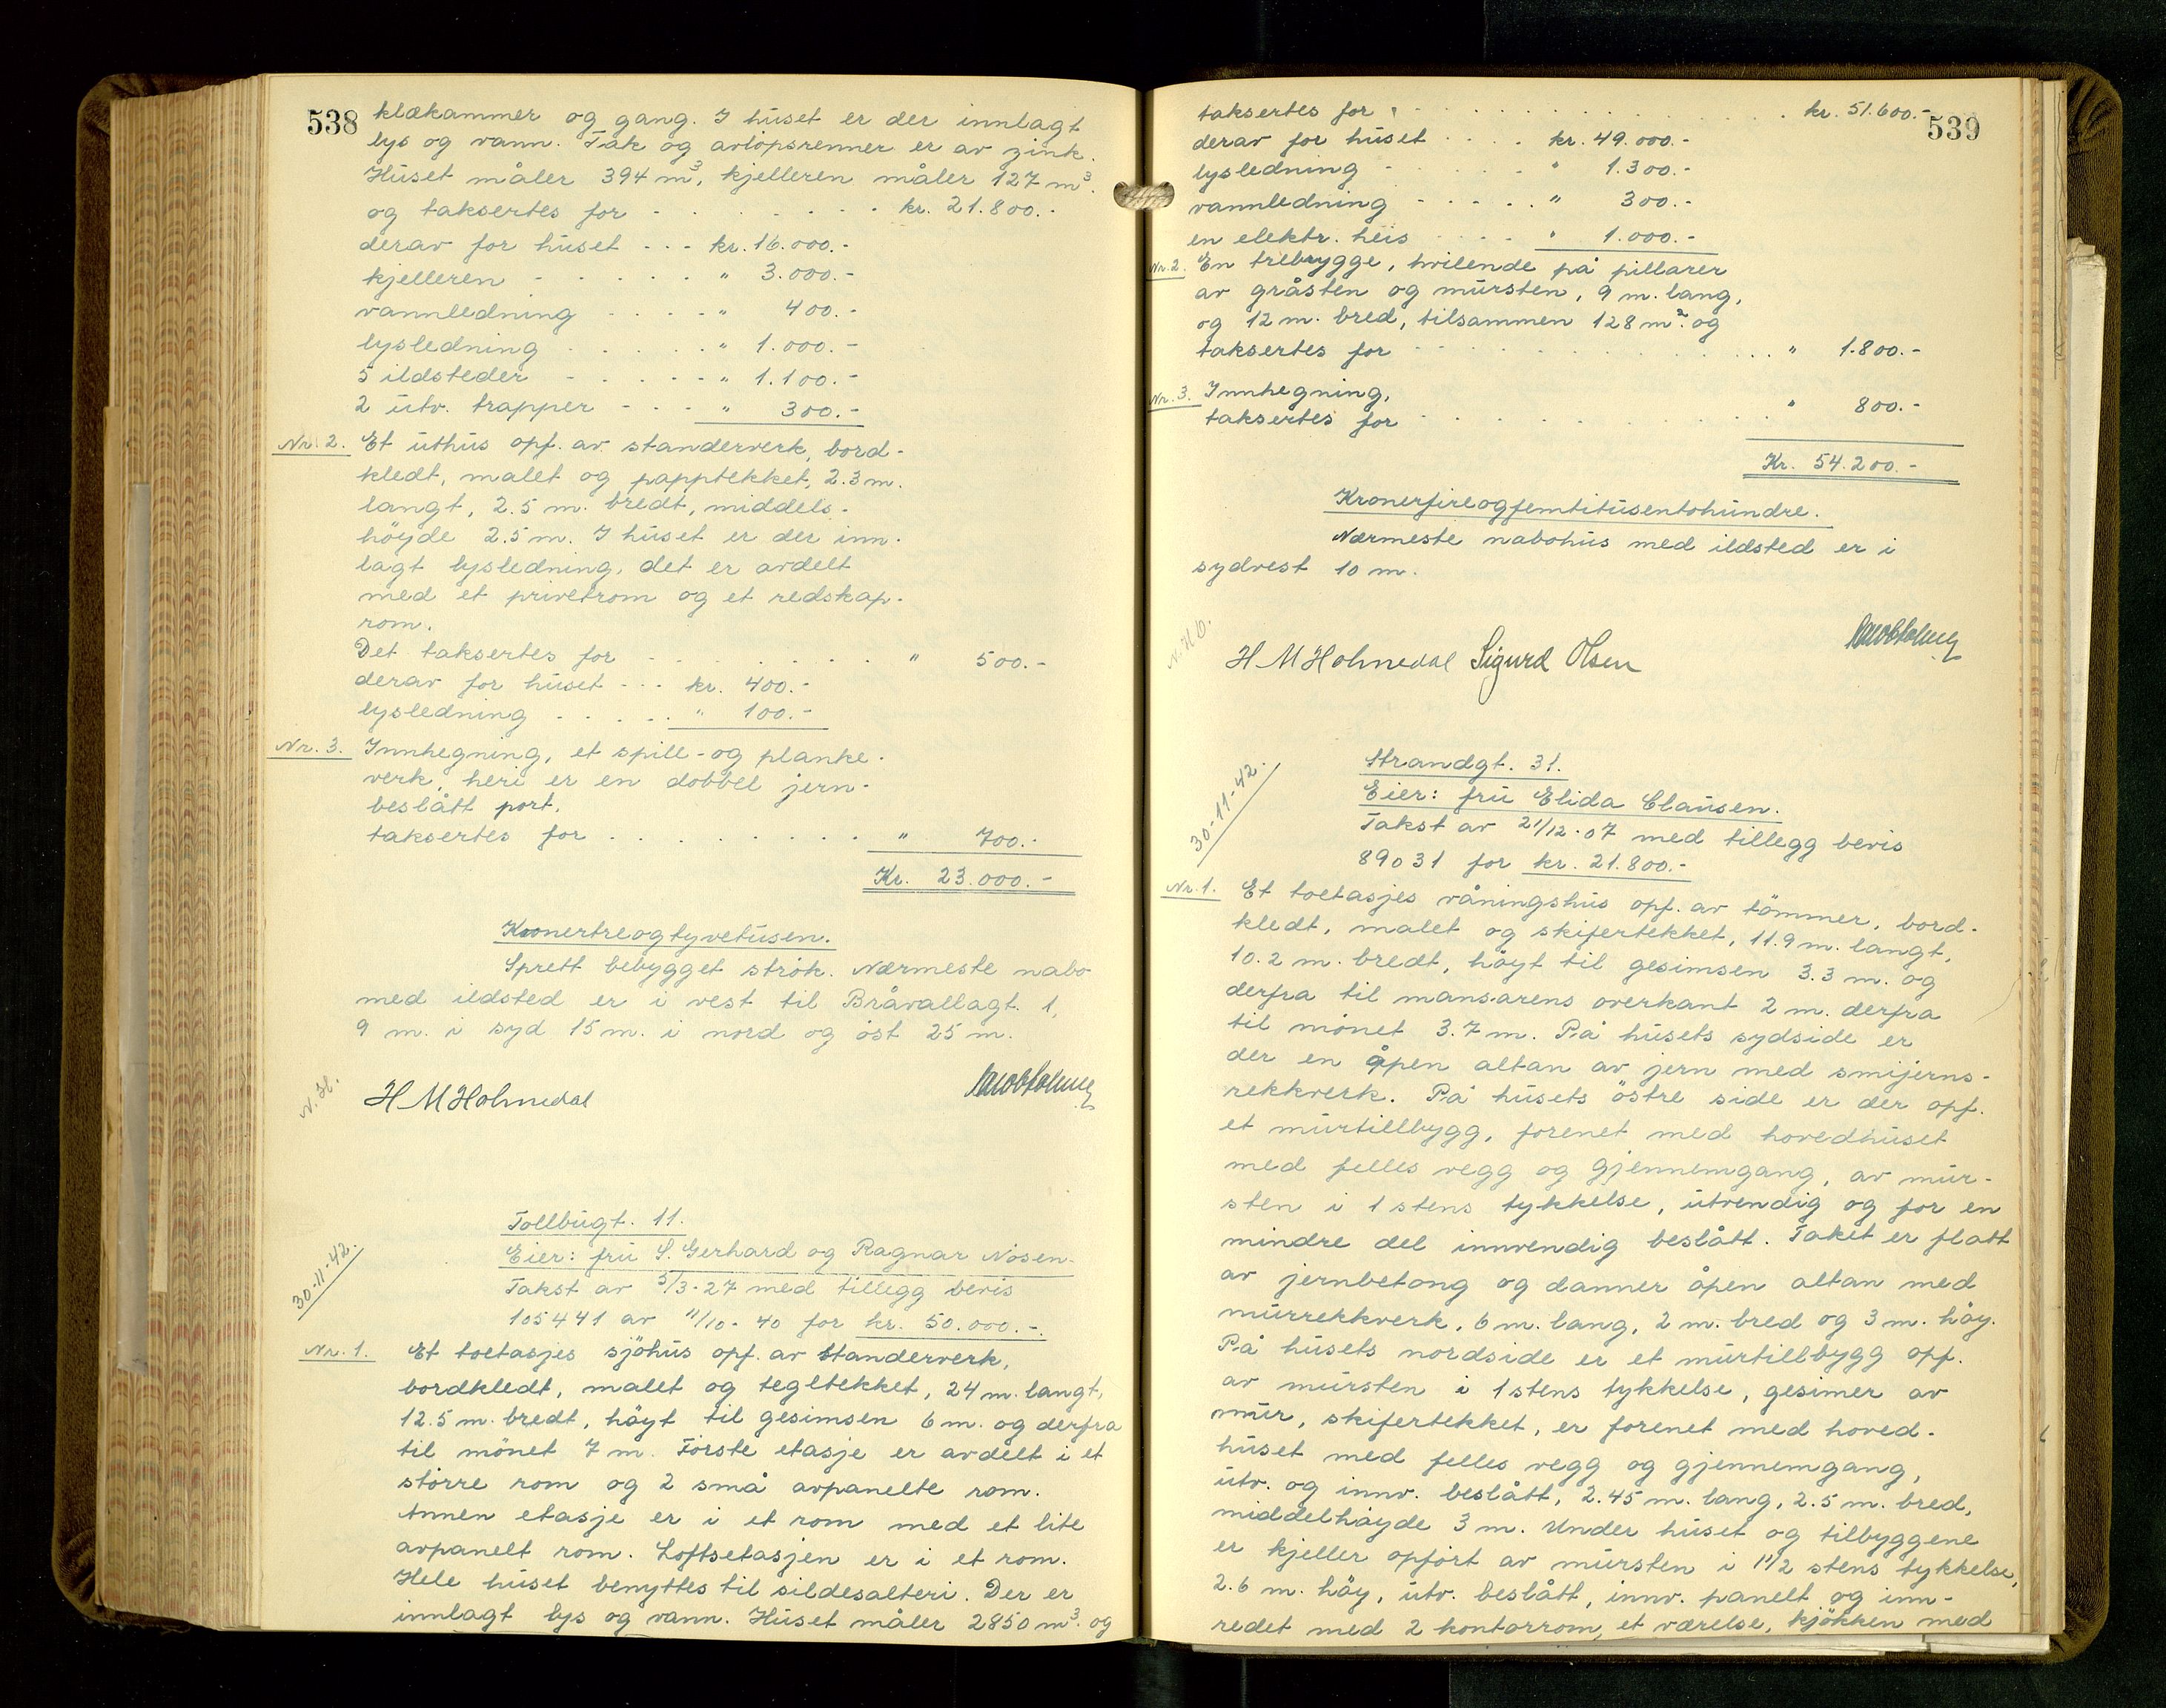 538
klækammer og gang. I huset er der innlagt
lys og vann. Tak og avlöpsrenner er av zink.
Huset måler 394 m³, kjelleren måler 127 m³.
og taksertes for - - - - - - - kr. 21.800.-
derav for huset - - - kr. 16.000.-
kjelleren - - - - - - " 3.000.-
vannledning - - - - " 400.-
lysledning - - - - - " 1.000.-
5 ildsteder - - - - - " 1.100.-
2 utv. trapper - - - " 300.-
Nr. 2. Et uthus opf. av standerverk, bord-
kledt, malet og papptekket, 2.3 m.
langt, 2.5 m. bredt, middels-
höyde 2.5 m. I huset er der inn-
lagt lysledning, det er avdelt
med et privetrom og et redskap-
rom.
Det taksertes for - - - - - - - " 500.-
derav for huset - - - kr. 400.-
lysledning - - - - - " 100.-
Nr. 3. Innhegning, et spill- og planke-
verk, heri er en dobbel jern-
beslått port.
taksertes for - - - - - - - " 700.-
Kr. 23.000.-
Kronertreogtyvetusen.
Sprett bebygget strök. Nærmeste nabo
med ildsted er i vest til Bråvallagt. 1,
9 m. i syd 15 m. i nord og öst 25 m.
N. H.
H M Holmedal
30-11-42.
Tollbugt. 11.
Eier: fru S. Gerhard og Ragnar Nosen.
Takst av 5/3-27 med tillegg bevis
105441 av 11/10-40 for kr. 50.000.-
Nr. 1. Et toetasjes sjöhus opf. av standerverk,
bordkledt, malet og tegltekket, 24 m. langt,
12.5 m. bredt, höyt til gesimsen 6 m. og derfra
til mönet 7 m. Förste etasje er avdelt i et
större rom og 2 små avpanelte rom.
Annen etasje er i et rom med et lite
avpanelt rom. Loftsetasjen er i et rom.
Hele huset benyttes til sildesalteri. Der er
innlagt lys og vann. Huset måler 2850 m³. og
539
taksertes for - - - - - - - kr. 51.600.-
derav for huset - - - kr. 49.000.-
lysledning - - - - - " 1.300.-
vannledning - - - - - " 300.-
en elektr. heis - - - - " 1.000.-
Nr. 2. En trebrygge, hvilende på pillarer
av gråsten og mursten, 9 m. lang,
og 12 m. bred, tilsammen 128 m². og
taksertes for - - - - - - - " 1.800.-
Nr. 3. Innhegning,
taksertes for - - - - - - - " 800.-
Kr. 54.200.-
Kronerfireogfemtitusentohundre.
Nærmeste nabohus med ildsted er i
sydvest 10 m.
N. H O.
H M Holmedal Sigurd Olsen
30-11-42.
Strandgt. 31.
Eier: fru Elida Clausen.
Takst av 21/12-07 med tillegg bevis
89031 for kr. 21.800.-
Nr. 1. Et toetasjes våningshus opf. av tömmer, bord-
kledt, malet og skifertekket, 11.9 m. langt,
10.2 m. bredt, höyt til gesimsen 3.3 m. og
derfra til mansarens overkant 2 m. derfra
til mönet 3.7 m. På husets sydside er
der en åpen altan av jern med smijerns-
rekkverk. På husets östre side er der opf.
et murtillbygg, forenet med hovedhuset
med felles vegg og gjennemgang, av mur-
sten i 1 stens tykkelse, utvendig og for en
mindre del innvendig beslått. Taket er flatt
av jernbetong og danner åpen altan med
murrekkverk, 6 m. lang, 2 m. bred og 3 m. höy.
På husets nordside er et murtillbygg opf.
av mursten i 1 stens tykkelse, gesimer av
mur, skifertekket, er forenet med hoved-
huset med felles vegg og gjennemgang,
utv. og innv. beslått, 2.45 m. lang, 2.5 m. bred,
middelhöyde 3 m. Under huset og tilbyggene
er kjeller opfört av mursten i 1 1/2 stens tykkelse,
2.6 m. höy, utv. beslått, innv. panelt og inn-
redet med 2 kontorrom, et værelse, kjökken med